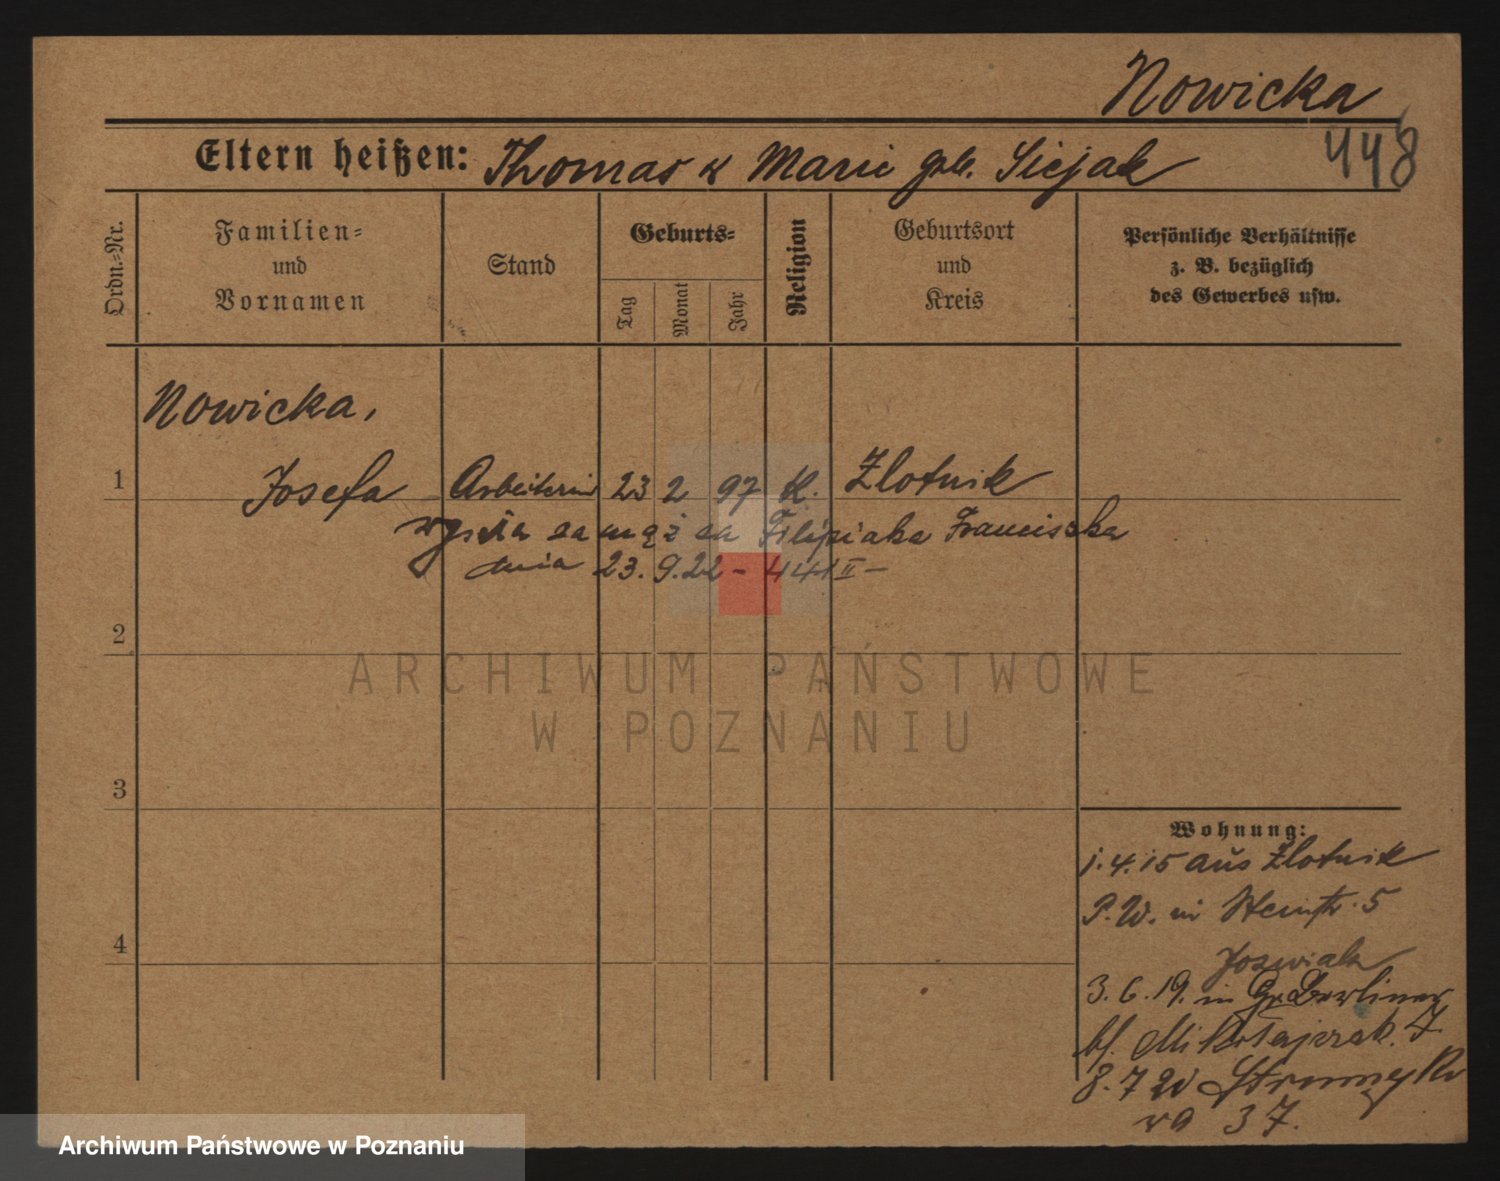 Nowicka
448
Eltern heißen: Thomas u Marie geb. Siejak
Ordn.-Nr.
Familien-
und
Vornamen
Stand
Geburts-
Tag
Monat
Jahr
Religion
Geburtsort
und
Kreis
Persönliche Verhältnisse
z. B. bezüglich
des Gewerbes usw.
Nowicka,
1 Josefa Arbeiterin 23 2 97 K. Zlotnik
wyszła za mąż za Filipiaka Franciszka
dnia 23.9.22 – 441 II –
2
3
4
Wohnung:
1.4.15 aus Zlotnik
P.W. in Steinstr. 5
Joswiak
3.6.19. in Gr. Berliner
bf. Mikołajczak. 7.
8.7 20
37.
ARCHIWUM PAŃSTWOWE
W POZNANIU
Archiwum Państwowe w Poznaniu